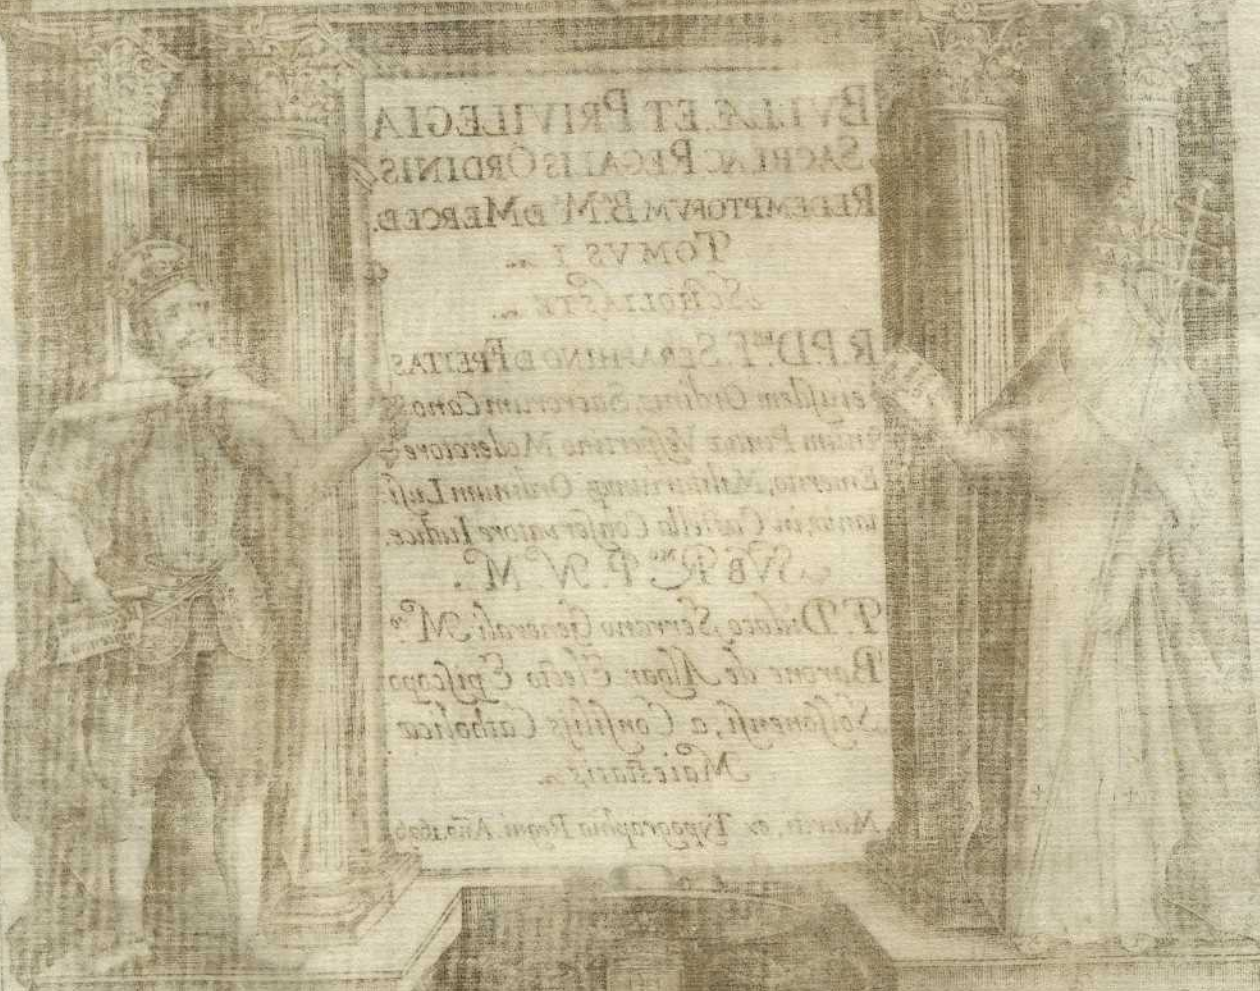 BVLLÆ, ET PRIVILEGIA
SACRI, AC REGALIS ORDINIS
REDEMPTORVM B.M. D MERCED.
TOMVS I.
SCHOLIASTE
R.P.D. F. SERAPHINO D FREITAS,
eiusdem Ordinis, Sacrorum Cano-
num Pintiæ Vespertino Moderatore
Emerito, Militariumq Ordinum Lusi-
in Castella Conservatore Iudice.
SVB R. P. N. M.
F. Didaco Serrano Generali M.
Barone de Algar, Electo Episcopo
Solsonensi, a Consilijs Catholicæ
Maiestatis
ex Typographia Regni. Año.